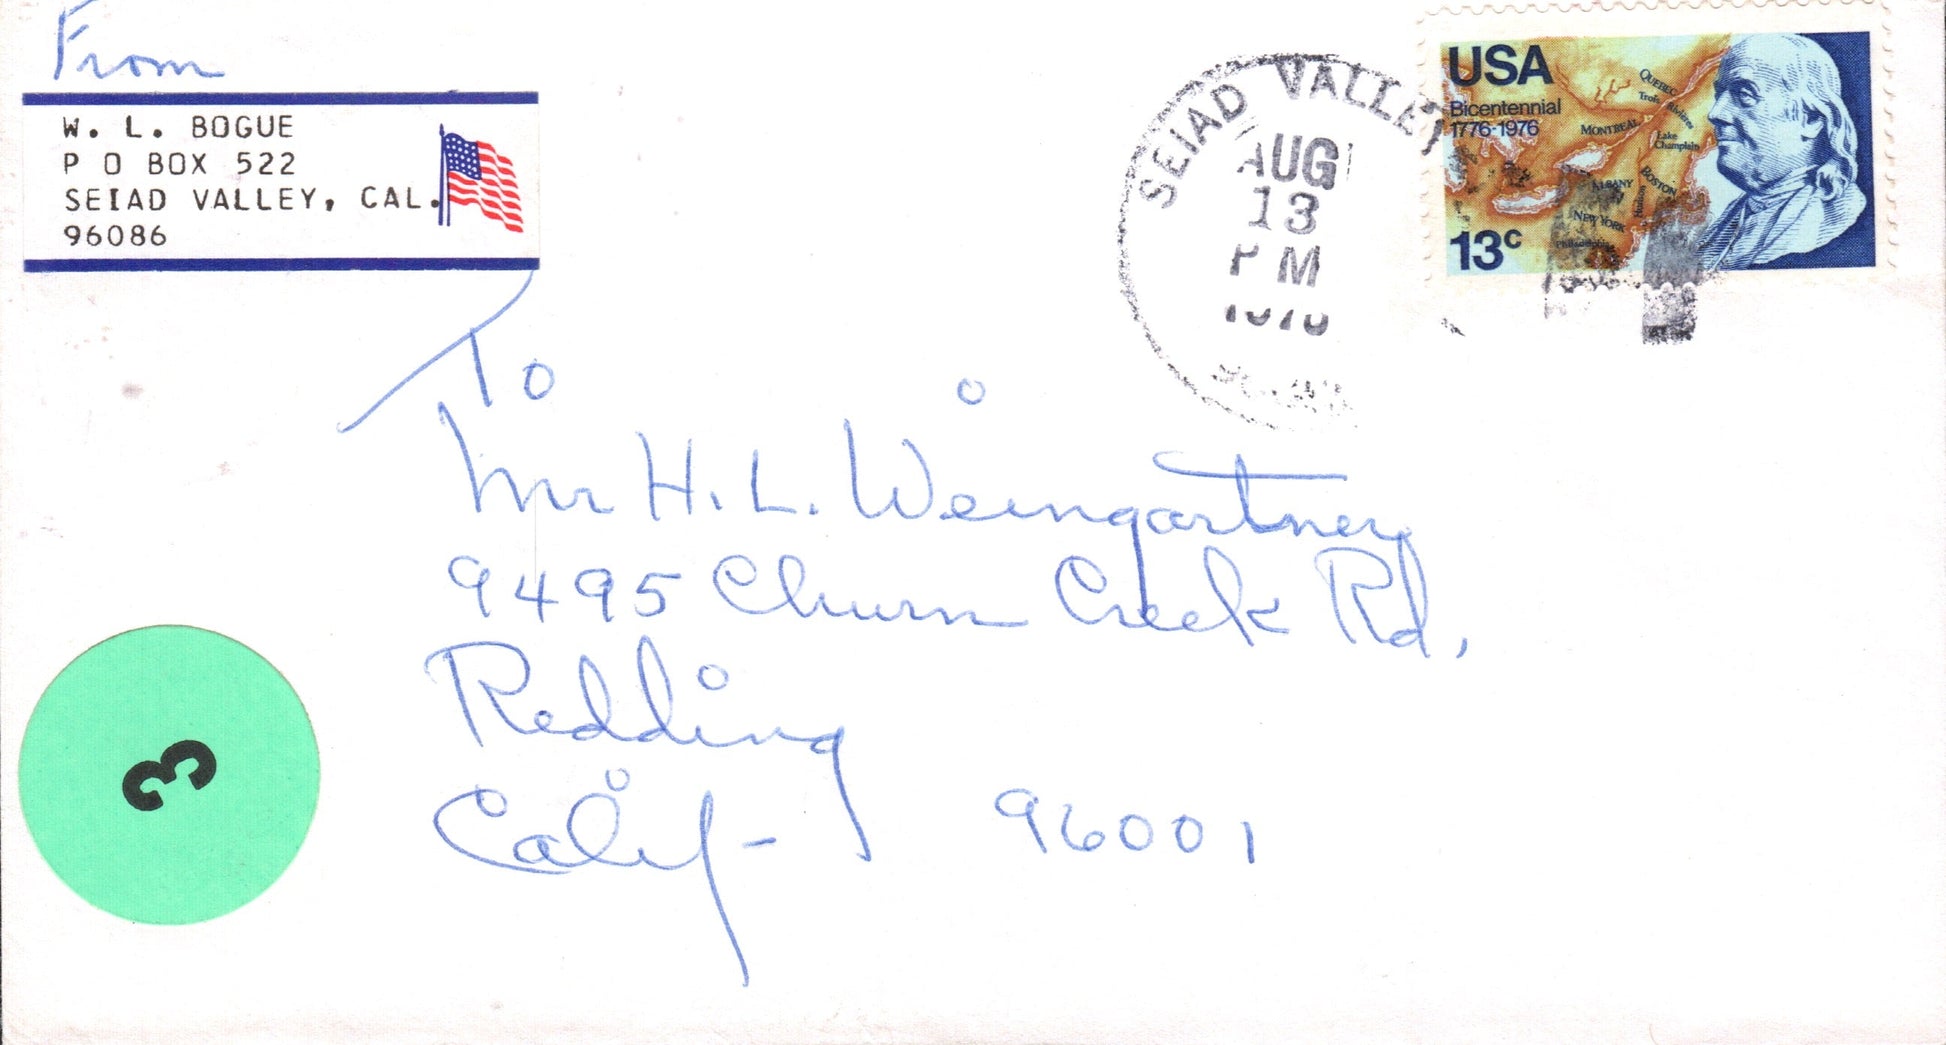 From
W. L. BOGUE
P O BOX 522
SEIAD VALLEY, CAL.
96086
SEIAD VALLEY
AUG
13
PM
1976
USA
Bicentennial
1776-1976
13c
QUEBEC
Trois Rivières
MONTREAL
Lake
Champlain
ALBANY
BOSTON
Hudson
NEW YORK
Philadelphia
To
Mr H. L. Weingartner
9495 Churn Creek Rd,
Redding
Calif- 96001
3